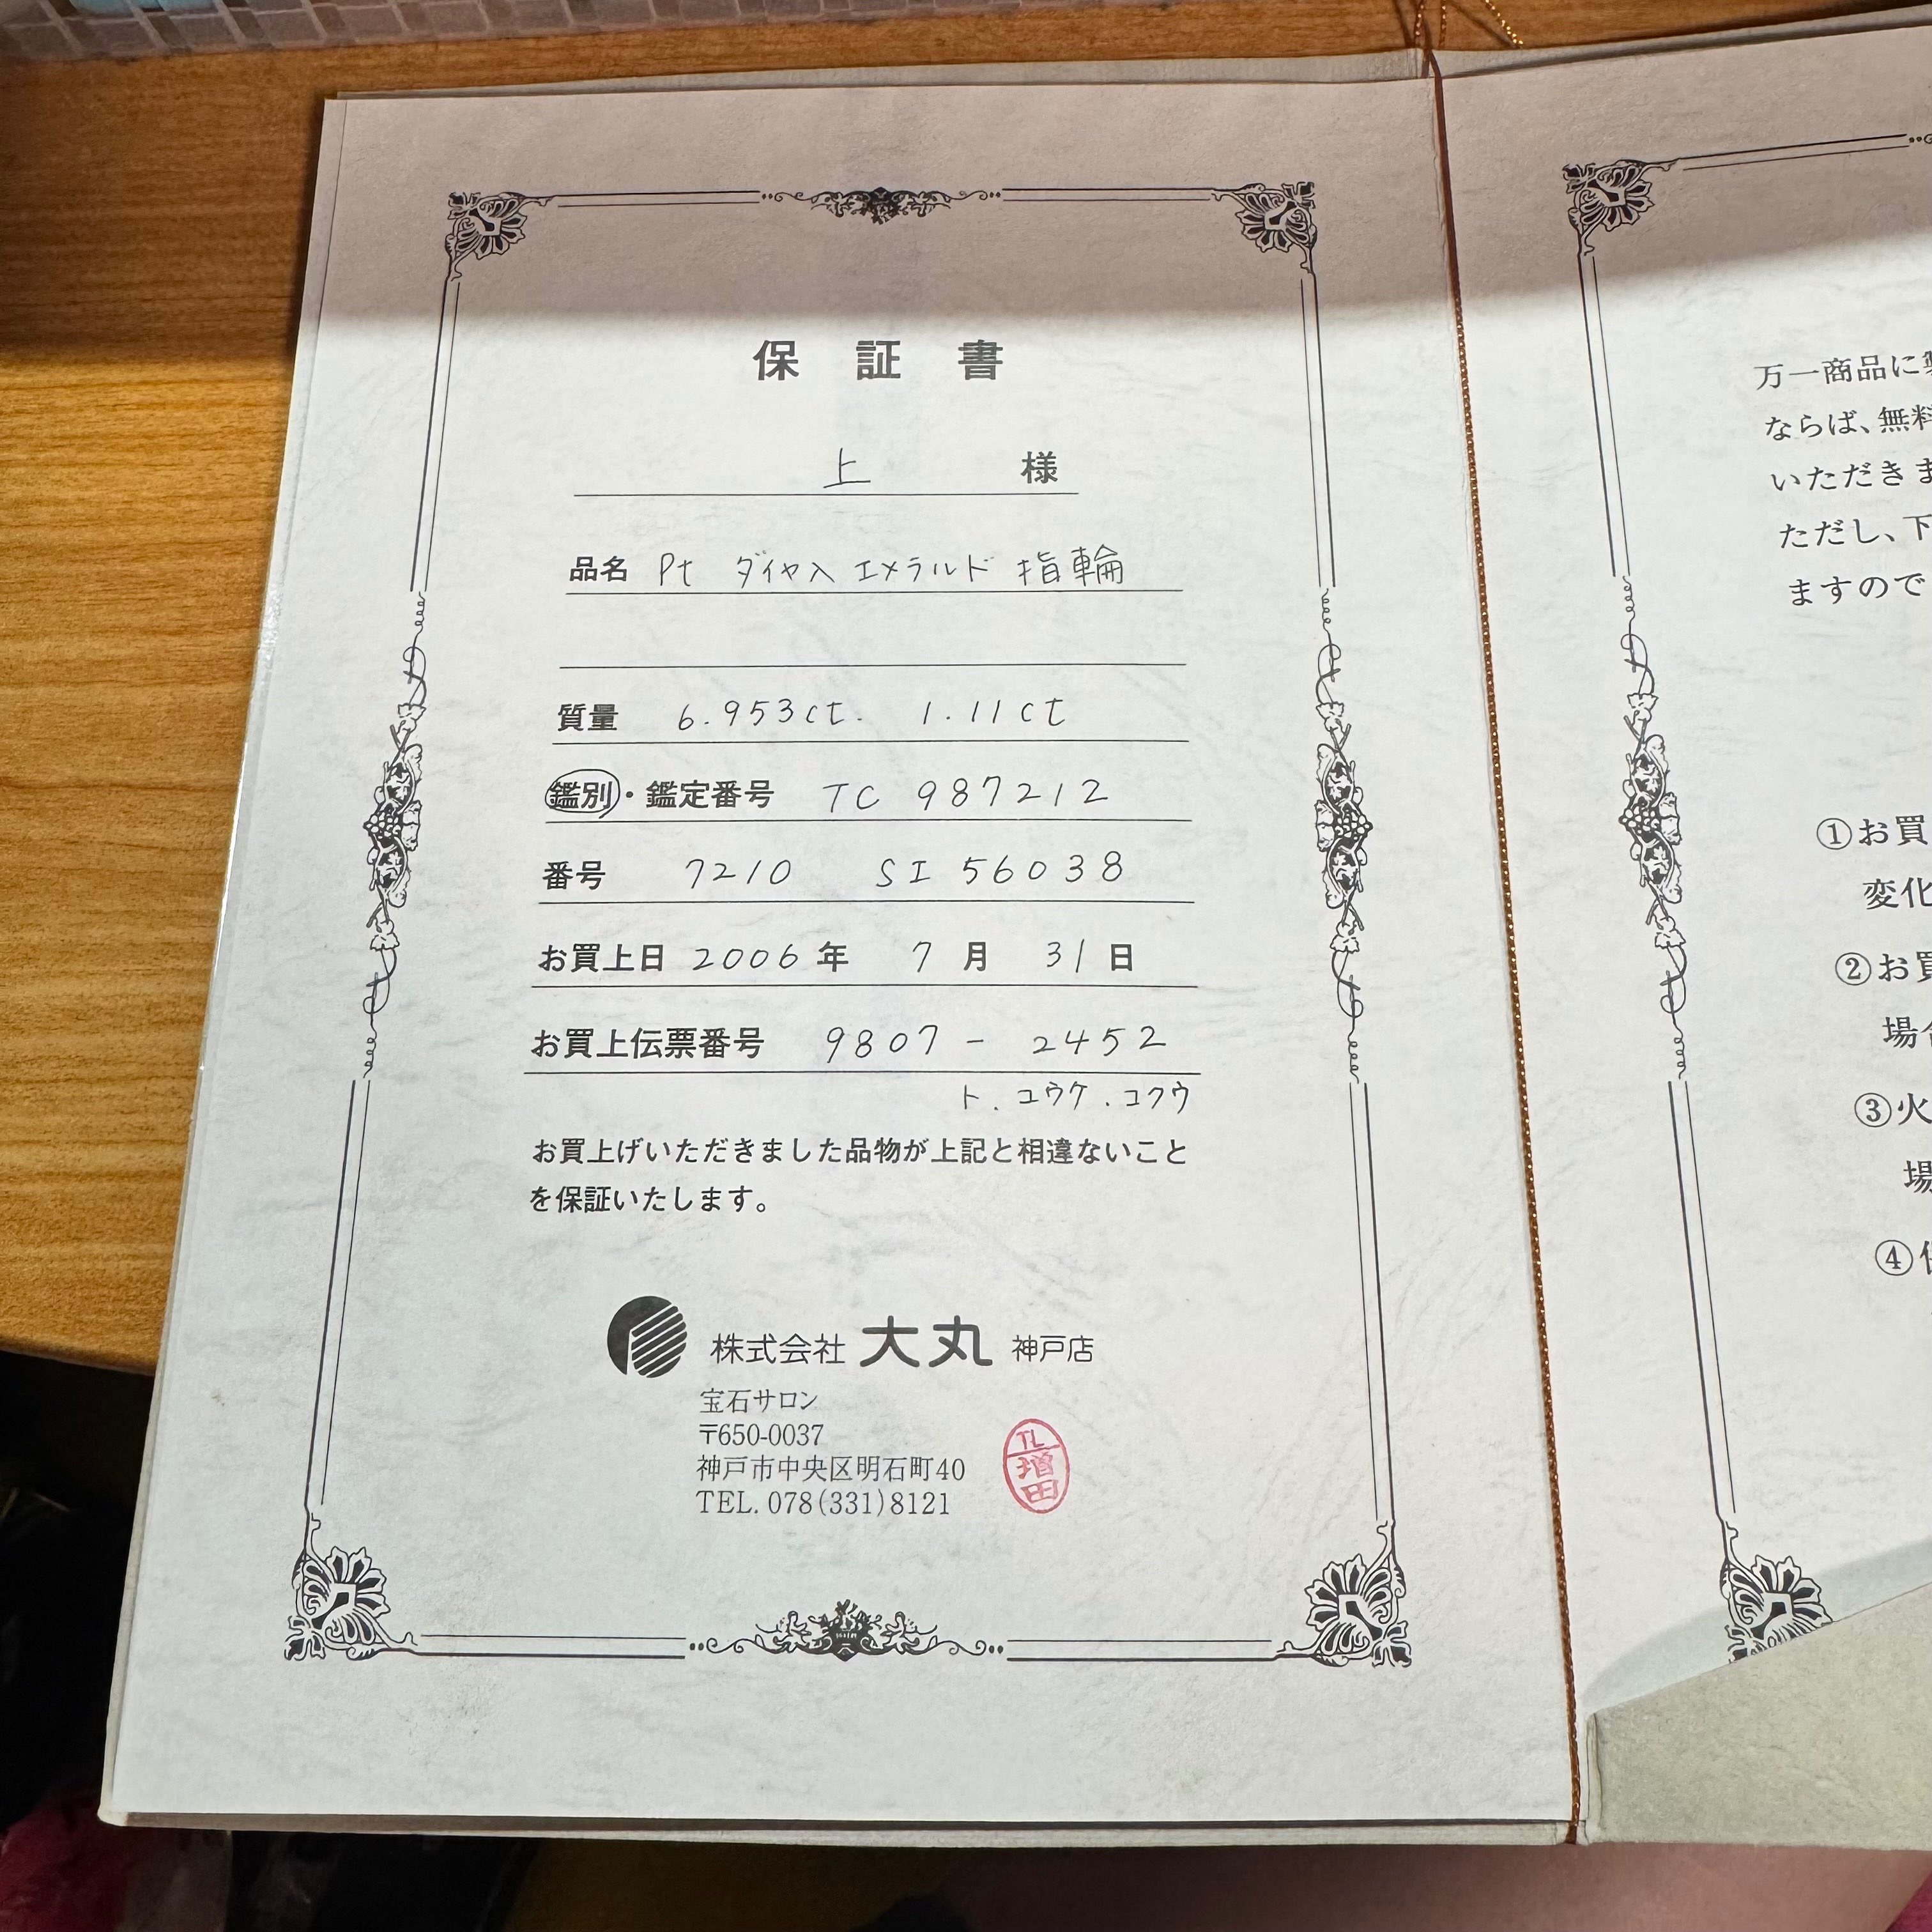 保証書
上 様
品名 Pt ダイヤ入 エメラルド 指輪
質量 6.953ct. 1.11ct
鑑別・鑑定番号 TC 987212
番号 7210 SI 56038
お買上日 2006年 7月 31日
お買上伝票番号 9807 - 2452
ト.コウケ.コクウ
お買上げいただきました品物が上記と相違ないこと
を保証いたします。
株式会社 大丸 神戸店
宝石サロン
〒650-0037
神戸市中央区明石町40
TEL. 078(331)8121
TL
増田
万一商品に
ならば、無料
いただきま
ただし、下
ますので
①お買
変化
②お買
場合
③火
場
④